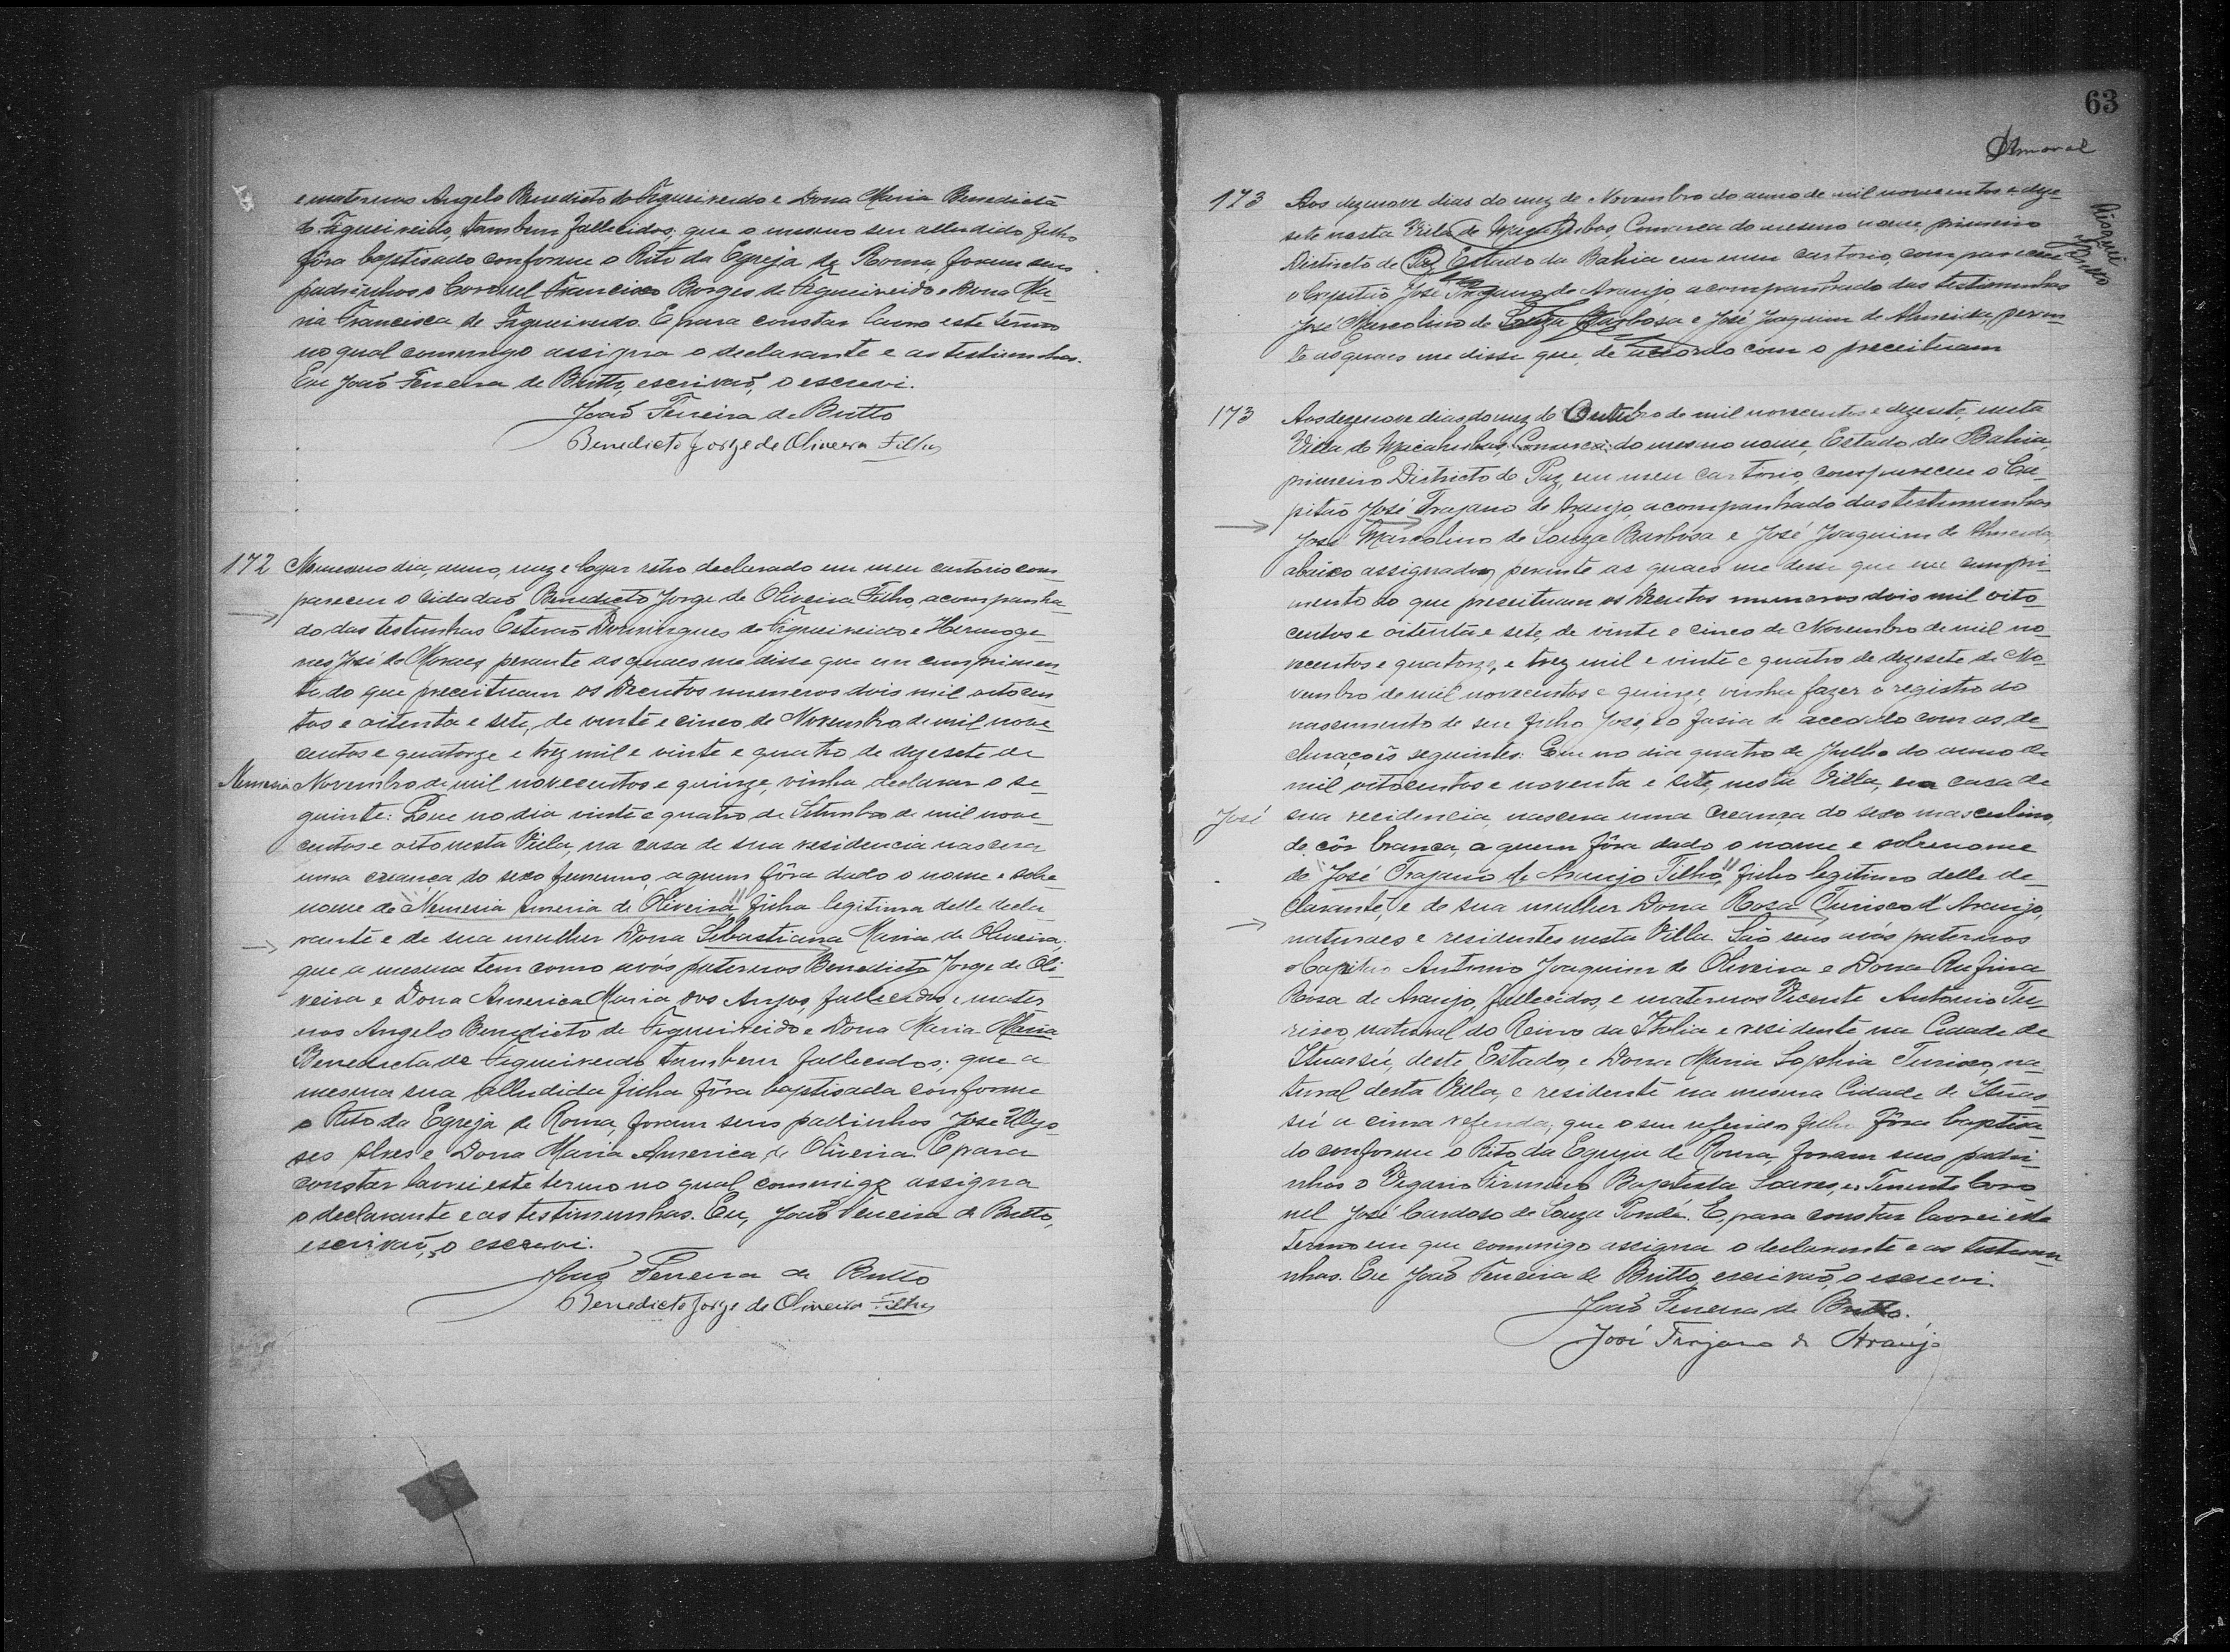 e maternos Angelo Benedicto de Figueireido e Dona Maria Benedicta
de Figueireido, tambem fallecidos; que o mesmo seu alludido filho
fôra baptisado conforme o Rito da Egreja de Roma, foram seus
padrinhos o Coronel Francisco Borges de Figueireido e Dona Ma-
ria Francisca de Figueiredo. E para constar lavro este termo
no qual commigo assigna o declarante e as testimunhas.
Eu João Ferreira de Britto, escrivão, o escrevi.
João Ferreira de Britto
Benedicto Jorge de Oliveira Filho
172 No mesmo dia, anno, mez e logar retro declarado em meu cartorio com-
pareceu o Cidadão Benedicto Jorge de Oliveira Filho, acompanha-
do das testimhas Estevão Domingues de Figueireido e Hermoge-
nes José de Moraes, perante as quaes me disse que em cumprimen-
to do que preceituam os Decretos numeros dois mil oitocen-
tos e oitenta e sete, de vinte e cinco de Novembro de mil nove-
centos e quatorze e trez mil e vinte e quatro de dezesete de
Nemesia Novembro de mil novecentos e quinze, vinha declarar o se-
guinte: Que no dia vinte e quatro de Setembro de mil nove-
centos e oito nesta Villa, na casa de sua residencia nascera
uma creança do sexo femenino, a quem fôra dado o nome e sobre-
nome de "Nemesia America de Oliveira" filha legitima delle decla-
rante e de sua mulher Dona Sebastiana Maria de Oliveira;
que a mesma tem como avós paternos Benedicto Jorge de Oli-
veira e Dona America Maria dos Anjos, fallecidos e mater-
nos Angelo Benedicto de Figueireido e Dona Maria Maria
Benedicta de Figueireido tambem fallecidos; que a
mesma sua alludida filha fôra baptisada conforme
o Rito da Egreja de Roma, foram seus padrinhos José Ulys-
ses Alves e Dona Maria America de Oliveira. E para
constar lavrei este termo no qual commigo assigna
o declarante e as testimunhas. Eu, João Ferreira de Britto,
escrivão, o escrevi.
João Ferreira de Britto
Benedicto Jorge de Oliveira Filho
63
173 Aos dezenove dias do mez de Novembro do anno de mil novecentos e deze-
sete nesta Villa de Macahubas, Comarca do mesmo nome primeiro
Districto de Paz, Estado da Bahia em meu cartorio, compareceu
o Capitão José Trajano de Araujo, acompanhado das testimunhas
José Marcolino de Souza Barbosa e José Joaquim de Almeida, peran-
te as quaes me disse que, de accordo com o preceituam
173 Aos dezenove dias do mez de Outubro de mil novecentos e dezesete, nesta
Villa de Macahubas, Comarca do mesmo nome, Estado da Bahia,
primeiro Districto de Paz, em meu cartorio, compareceu o Ca-
pitão José Trajano de Araujo, acompanhado das testimunhas
José Marcolino de Souza Barbosa e José Joaquim de Almeida,
abaixo assignados, perante as quaes me disse que em cumpri-
mento do que preceituam os Decretos numeros dois mil oito-
centos e oitenta e sete, de vinte e cinco de Novembro de mil no-
vecentos e quatorze, e trez mil e vinte e quatro de dezesete de No-
vembro de mil novecentos e quinze, vinha fazer o registro do
nascimento de seu filho José, e o fasia de accordo com as de-
claraçoẽs seguintes: Que no dia quatro de Julho do anno de
mil oitocentos e noventa e sete, nesta Villa, em casa de
José sua residencia, nascera uma creança do sexo masculino,
de côr branca, a quem fôra dado o nome e sobrenome
de "José Trajano de Araujo Filho," filho legitimo delle de-
clarante, e de sua mulher Dona Rosa Turisco d'Araujo,
naturaes e residentes nesta Villa. São seus avós paternos
o Capitão Antonio Joaquim de Oliveira e Dona Rufina
Rosa de Araujo, fallecidos, e maternos Vicente Antonio Tu-
risco, natural do Reino da Italia e residente na Cidade de
Ituassú, deste Estado, e Dona Maria Sophia Turisco, na-
tural desta Villa, e residente na mesma Cidade de Ituas-
sú a cima referida; que o seu referido filho fôra baptisa-
do conforme o Rito da Egreja de Roma, foram seus padri-
nhos o Vigario Firmino Baptista Soares, e Tenente Coro-
nel José Cardoso de Souza Pondé. E, para constar lavrei este
termo em que commigo assigna o declarante e as testimu-
nhas. Eu João Ferreira de Britto, escrivão, o escrevi.
João Ferreira de Britto.
José Trajano de Araujo